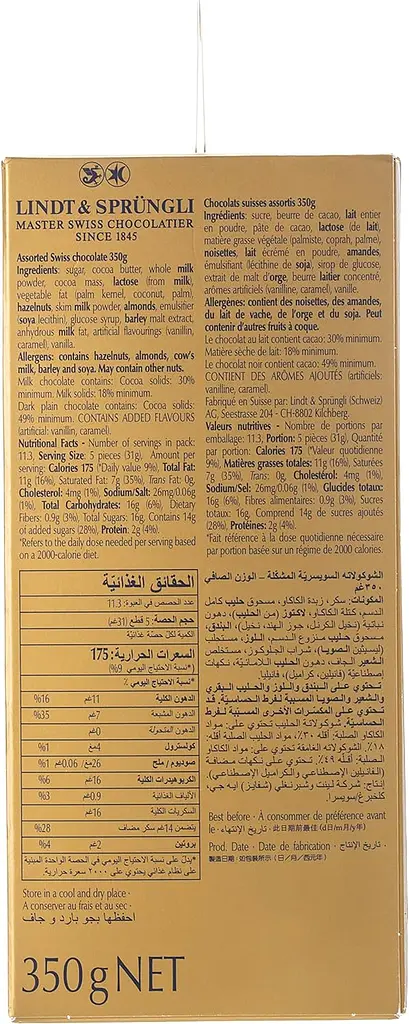 LINDT & SPRÜNGLI
MASTER SWISS CHOCOLATIER
SINCE 1845
Assorted Swiss chocolate 350g
Ingredients: sugar, cocoa butter, whole milk
powder, cocoa mass, lactose (from milk),
vegetable fat (palm kernel, coconut, palm),
hazelnuts, skim milk powder, almonds, emulsifier
(soya lecithin), glucose syrup, barley malt extract,
anhydrous milk fat, artificial flavourings (vanillin,
caramel), vanilla.
Allergens: contains hazelnuts, almonds, cow's
milk, barley and soya. May contain other nuts.
Milk chocolate contains: Cocoa solids: 30%
minimum. Milk solids: 18% minimum.
Dark plain chocolate contains: Cocoa solids:
49% minimum. CONTAINS ADDED FLAVOURS
(artificial: vanillin, caramel).
Nutritional Facts - Number of servings in pack:
11.3, Serving Size: 5 pieces (31g), Amount per
serving: Calories 175 (*Daily value 9%), Total Fat:
11g (16%), Saturated Fat: 7g (35%), Trans Fat: 0g,
Cholesterol: 4mg (1%), Sodium/Salt: 26mg/0.06g
(1%), Total Carbohydrates: 16g (6%), Dietary
Fibers: 0.9g (3%), Total Sugars: 16g, Contains 14g
of added sugars (28%), Protein: 2g (4%).
*Refers to the daily dose needed per serving based
on a 2000-calorie diet.
Chocolats suisses assortis 350g
Ingrédients: sucre, beurre de cacao, lait entier
en poudre, pâte de cacao, lactose (de lait),
matière grasse végétale (palmiste, coprah, palme),
noisettes, lait écrémé en poudre, amandes,
émulsifiant (lécithine de soja), sirop de glucose,
extrait de malt d'orge, beurre laitier concentré,
arômes artificiels (vanilline, caramel), vanille.
Allergènes: contient des noisettes, des amandes,
du lait de vache, de l'orge et du soja. Peut
contenir d'autres fruits à coque.
Le chocolat au lait contient cacao: 30% minimum.
Matière sèche de lait: 18% minimum.
Le chocolat noir contient cacao: 49% minimum.
CONTIENT DES ARÔMES AJOUTÉS (artificiels:
vanilline, caramel).
Fabriqué en Suisse par: Lindt & Sprüngli (Schweiz)
AG, Seestrasse 204 - CH-8802 Kilchberg.
Valeurs nutritives - Nombre de portions par
emballage: 11.3, Portion: 5 pièces (31g), Quantité
par portion: Calories 175 (*Valeur quotidienne
9%), Matières grasses totales: 11g (16%), Saturées
7g (35%), Trans: 0g, Choléstérol: 4mg (1%),
Sodium/Sel: 26mg/0.06g (1%), Glucides totaux:
16g (6%), Fibres alimentaires: 0.9g (3%), Sucres
totaux: 16g, Comprend 14g de sucres ajoutés
(28%), Protéines: 2g (4%).
*Fait référence à la dose quotidienne nécessaire
par portion basée sur un régime de 2000 calories.
الحقائق الغذائية
عدد الحصص في العبوة: 11.3
حجم الحصة: 5 قطع (31غم)
الكمية لكل حصة غذائية
السعرات الحرارية: 175
*نسبة الاحتياج اليومي 9%)
*نسبة الاحتياج اليومي %
الدهون الكلية 11غم 16%
الدهون المشبعة 7غم 35%
الدهون المتحولة 0غم
كولسترول 4مغ 1%
صوديوم / ملح 26مغ/ 0.06غم 1%
الكربوهيدرات الكلية 16غم 6%
الألياف الغذائية 0.9غم 3%
السكريات الكلية 16غم
يتضمن 14غم سكر مضاف 28%
بروتين 2غم 4%
*يدل على نسبة الاحتياج اليومي في الحصة الواحدة المبنية
على نظام غذائي يحتوي على ٢٠٠٠ سعرة حرارية.
الشوكولاته السويسرية المشكلة – الوزن الصافي
٣٥٠غم
المكونات: سكر، زبدة الكاكاو، مسحوق حليب كامل
الدسم، كتلة الكاكاو، لاكتوز (من الحليب)، دهون
نباتية (نخيل الكرنل، جوز الهند، نخيل)، البندق،
مسحوق حليب منزوع الدسم، اللوز، مستحلب
(ليسيثين الصويا)، شراب الجلوكوز، مستخلص
الشعير الجاف، دهون الحليب اللامائية، نكهات
إصطناعية (فانيلين، كراميل)، فانيليا.
تحتوي على البندق واللوز والحليب البقري
والشعير والصويا المسببة لفرط الحساسية. قد
تحتوي على المكسرات الأخرى المسببة لفرط
الحساسية. شوكولاتة الحليب تحتوي على: مواد
الكاكاو الصلبة: أقله ٣٠٪، مواد الحليب الصلبة أقله:
١٨٪. الشوكولاته الغامقة تحتوي على: مواد الكاكاو
الصلبة: أقله ٤٩٪. تحتوي على نكهات مضافة
(الفانيلين الإصطناعي والكراميل الإصطناعي).
إنتاج: شركة لينت وشبرنغلي (شفايز) ايه جي،
كلخبرغ/سويسرا.
Best before · À consommer de préférence avant
le · تاريخ الإنتهاء · 此日期前最佳 (d日/m月/y年)
Prod. Date · Date de fabrication · تاريخ الإنتاج ·
製造日期：如包裝所示（日／月／西元年）
Store in a cool and dry place ·
A conserver au frais et au sec ·
احفظها بجو بارد و جاف
350g NET